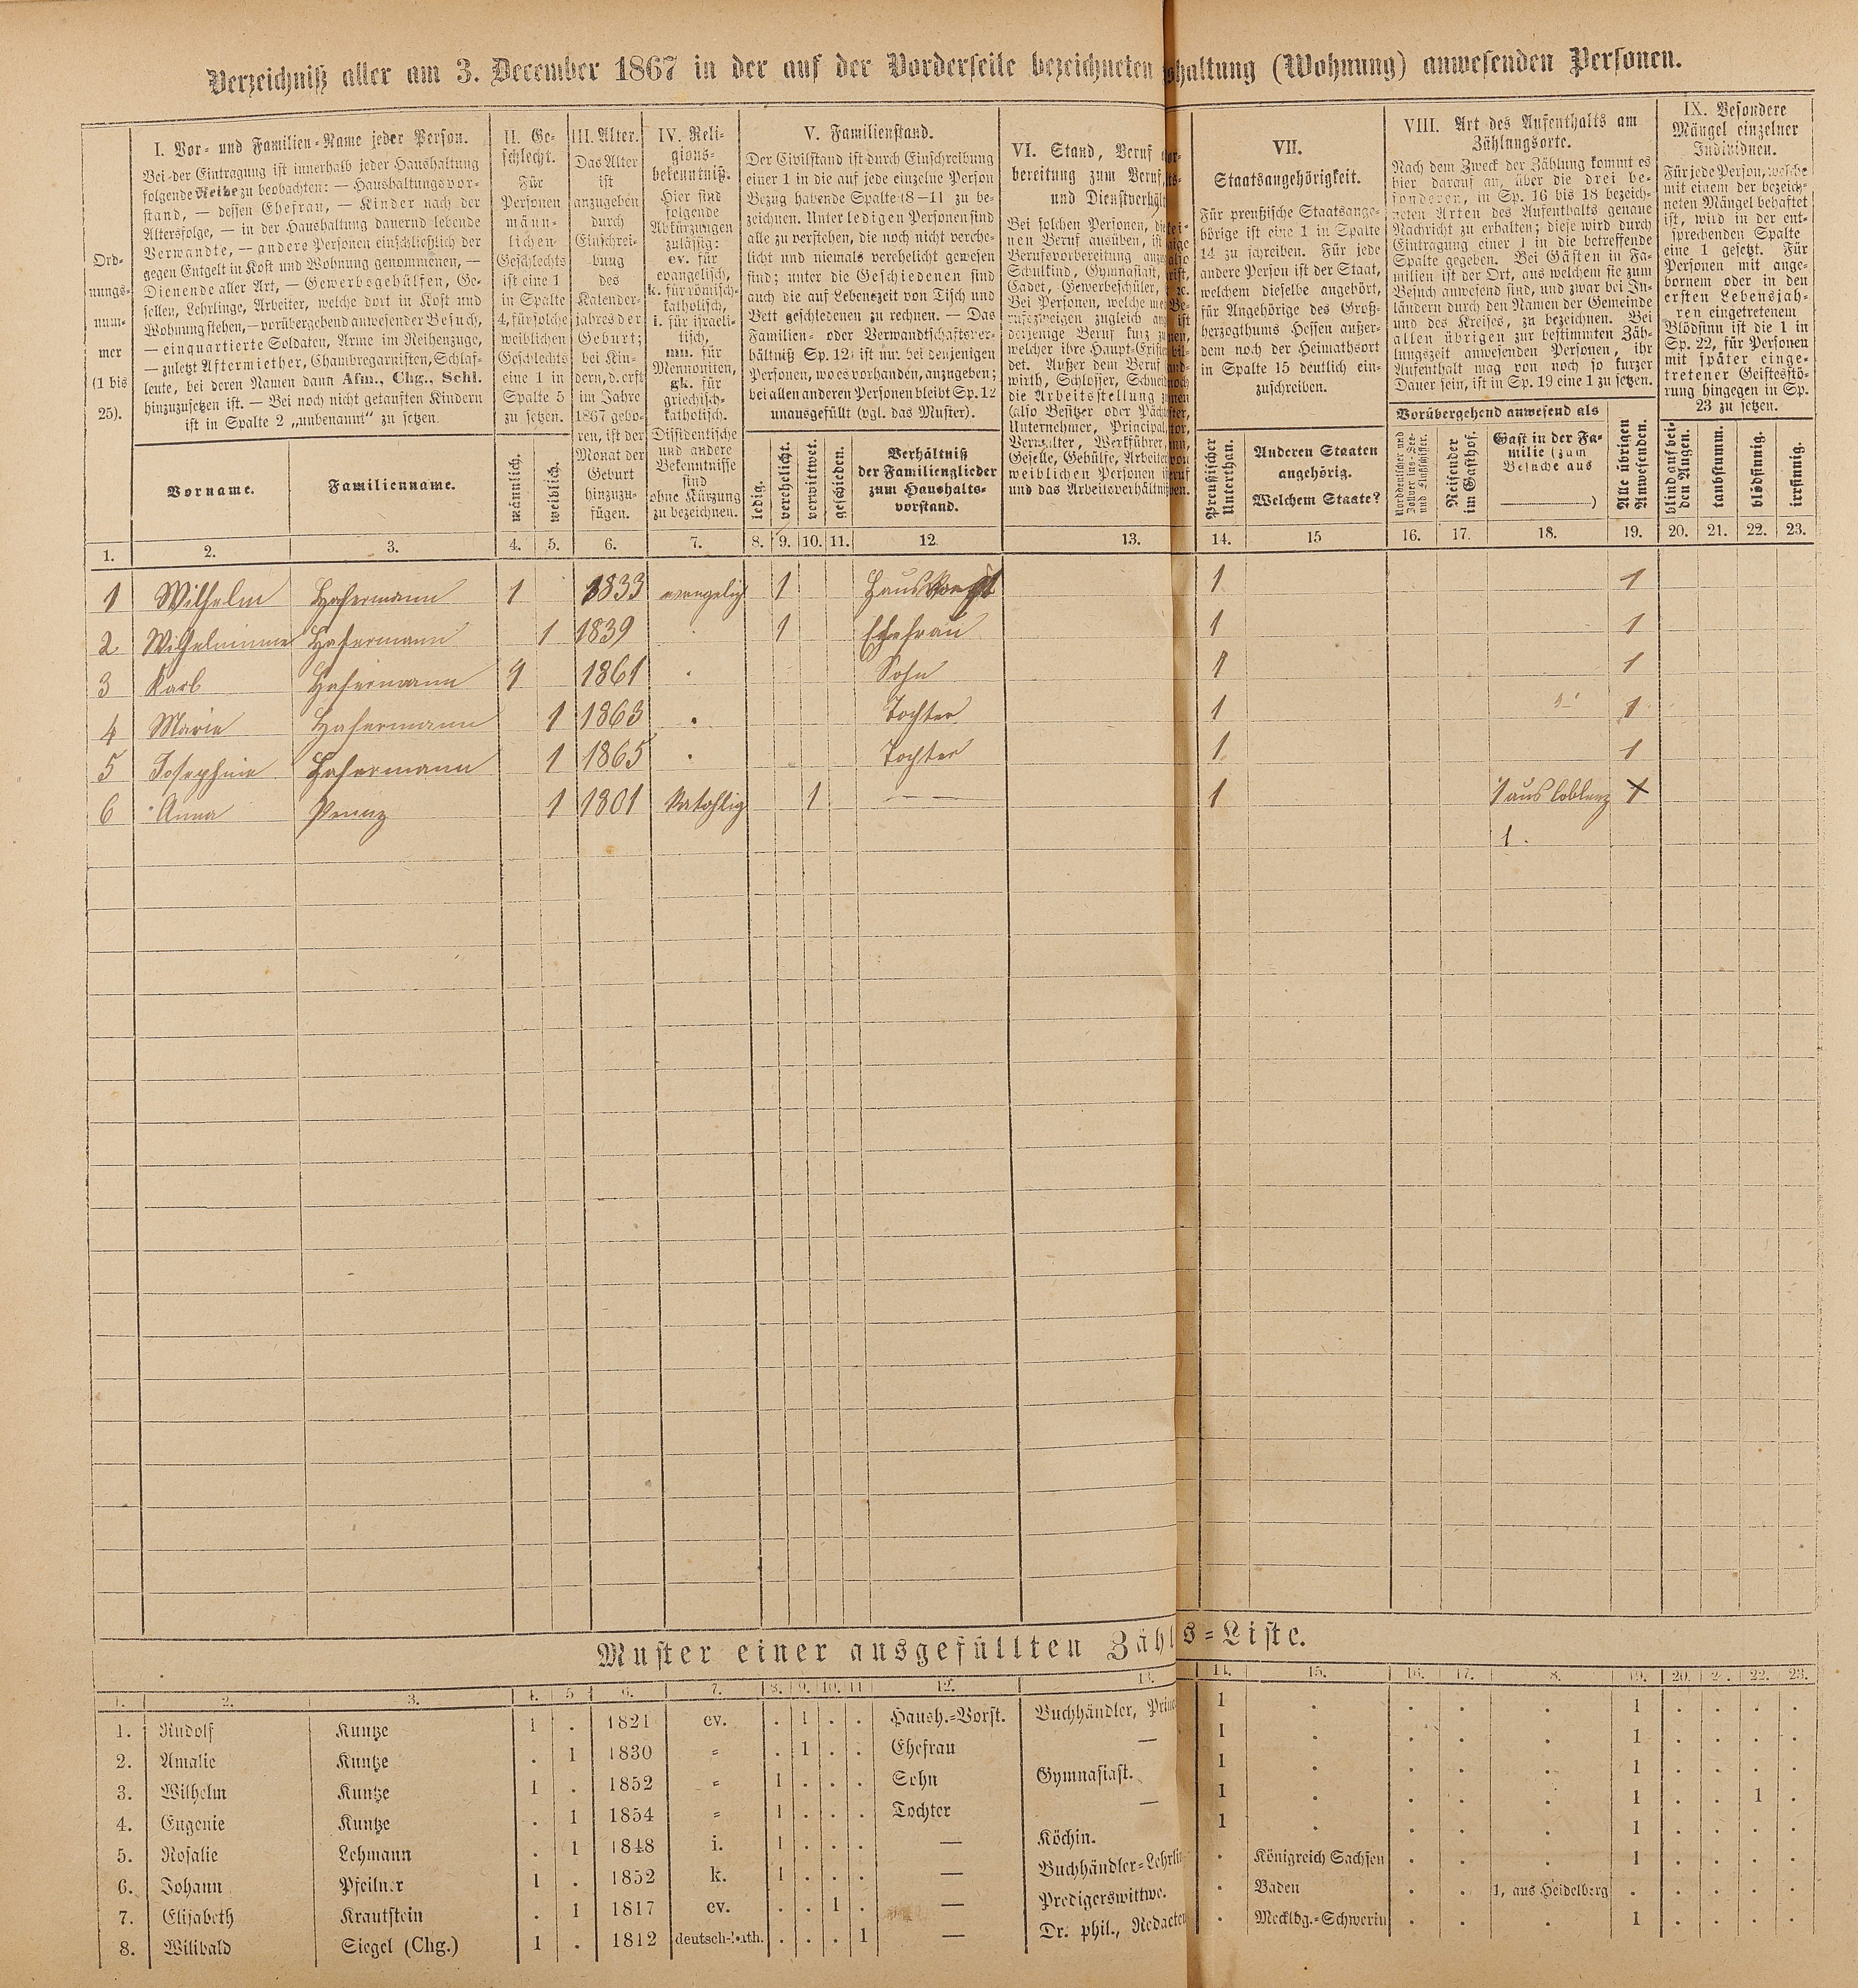 Verzeichniß aller am 3. December 1867 in der auf der Vorderseite bezeichneten shaltung (Wohnung) anwesenden Personen.
Ord-
nungs-
num-
mer
(1 bis
25).
I. Vor- und Familien-Name jeder Person.
Bei der Eintragung ist innerhalb jeder Haushaltung
folgende Reihe zu beobachten: — Haushaltungsvor-
stand, — dessen Ehefrau, — Kinder nach der
Altersfolge, — in der Haushaltung dauernd lebende
Verwandte, — andere Personen einschließlich der
gegen Entgelt in Kost und Wohnung genommenen, —
Dienende aller Art, — Gewerbsgehülfen, Ge-
sellen, Lehrlinge, Arbeiter, welche dort in Kost und
Wohnung stehen, — vorübergehend anwesender Besuch,
— einquartierte Soldaten, Arme im Reihenzuge,
— zuletzt Aftermiether, Chambregarnisten, Schlaf-
leute, bei deren Namen dann Afm., Chg., Schl.
hinzuzusetzen ist. — Bei noch nicht getauften Kindern
ist in Spalte 2 „unbenannt" zu setzen.
Vorname.
Familienname.
II. Ge-
schlecht.
Für
Personen
männ-
lichen
Geschlechts
ist eine 1
in Spalte
4, für solche
weiblichen
Geschlechts
eine 1 in
Spalte 5
zu setzen.
männlich.
weiblich.
III. Alter.
Das Alter
ist
anzugeben
durch
Einschrei-
bung
des
Kalender-
jahres der
Geburt;
bei Kin-
dern, d. erst
im Jahre
1867 gebo-
ren, ist der
Monat der
Geburt
hinzuzu-
fügen.
IV. Reli-
gions-
bekenntniß.
Hier sind
folgende
Abkürzungen
zulässig:
ev. für
evangelisch,
k. für römisch-
katholisch,
i. für israeli-
tisch,
mn. für
Mennoniten,
gk. für
griechisch-
katholisch.
Dissidentische
und andere
Bekenntnisse
sind
ohne Kürzung
zu bezeichnen.
V. Familienstand.
Der Civilstand ist durch Einschreibung
einer 1 in die auf jede einzelne Person
Bezug habende Spalte (8—11) zu be-
zeichnen. Unter ledigen Personen sind
alle zu verstehen, die noch nicht verehe-
licht und niemals verehelicht gewesen
sind; unter die Geschiedenen sind
auch die auf Lebenszeit von Tisch und
Bett geschiedenen zu rechnen. — Das
Familien- oder Verwandtschaftsver-
hältniß Sp. 12 ist nur bei denjenigen
Personen, wo es vorhanden, anzugeben;
bei allen anderen Personen bleibt Sp. 12
unausgefüllt (vgl. das Muster).
ledig.
verehelicht.
verwittwet.
geschieden.
Verhältniß
der Familienglieder
zum Haushalts-
vorstand.
VI. Stand, Beruf
bereitung zum Beruf,
und Dienstverhält
Bei solchen Personen, die
nen Beruf ausüben, ist
Berufsvorbereitung
Schulkind, Gymnasiast,
Cadet, Gewerbeschüler,
Bei Personen, welche
rufszweigen zugleich
derjenige Beruf kurz
welcher ihre Haupt-
det. Außer dem Beruf
wirth, Schlosser,
die Arbeitsstellung
(also Besitzer oder
Unternehmer, Principal,
Verwalter, Werkführer,
Geselle, Gehülfe, Arbeiter
weiblichen Personen
und das Arbeitsverhältniß
VII.
Staatsangehörigkeit.
Für preußische Staatsange-
hörige ist eine 1 in Spalte
14 zu schreiben. Für jede
andere Person ist der Staat,
welchem dieselbe angehört,
für Angehörige des Groß-
herzogthums Hessen außer-
dem noch der Heimathsort
in Spalte 15 deutlich ein-
zuschreiben.
Preußischer
Unterthan.
Anderen Staaten
angehörig.
Welchem Staate?
VIII. Art des Aufenthalts am
Zählungsorte.
Nach dem Zweck der Zählung kommt es
hier darauf an, über die drei be-
sonderen, in Sp. 16 bis 18 bezeich-
neten Arten des Aufenthalts genaue
Nachricht zu erhalten; diese wird durch
Eintragung einer 1 in die betreffende
Spalte gegeben. Bei Gästen in Fa-
milien ist der Ort, aus welchem sie zum
Besuch anwesend sind, und zwar bei In-
ländern durch den Namen der Gemeinde
und des Kreises, zu bezeichnen. Bei
allen übrigen zur bestimmten Zäh-
lungszeit anwesenden Personen, ihr
Aufenthalt mag von noch so kurzer
Dauer sein, ist in Sp. 19 eine 1 zu setzen.
Vorübergehend anwesend als
Norddeutscher und
Zollver ins-See-
und Flußschiffer.
Reisender
im Gasthof.
Gast in der Fa-
milie (zum
Besuche aus
)
Alle übrigen
Anwesenden.
IX. Besondere
Mängel einzelner
Individuen.
Für jede Person, welche
mit einem der bezeich-
neten Mängel behaftet
ist, wird in der ent-
sprechenden Spalte
eine 1 gesetzt. Für
Personen mit ange-
bornem oder in den
ersten Lebensjah-
ren eingetretenem
Blödsinn ist die 1 in
Sp. 22, für Personen
mit später einge-
tretener Geistesstö-
rung hingegen in Sp.
23 zu setzen.
blind auf bei-
den Augen.
taubstumm.
blödsinnig.
irrsinnig.
1. 2. 3. 4. 5. 6. 7. 8. 9. 10. 11. 12 13. 14. 15 16. 17. 18. 19. 20. 21. 22. 23.
1 Wilhelm Hasermann 1 1833 evangelisch 1 Haus 1 1
2 Wilhelmine Hasermann 1 1839 1 Ehefrau 1 1
3 Karl Hasermann 1 1861 Sohn 1 1
4 Marie Hasermann 1 1863 Tochter 1 1
5 Josephine Hasermann 1 1865 Tochter 1 1
6 Anna 1 1801 1 — 1 1 aus Coblenz 1
1.
Muster einer ausgefüllten Zähl s-Liste.
1. 2. 3. 4. 5. 6. 7. 8. 9. 10. 11 12. 13. 14. 15. 16. 17. 8. 19. 20. 22. 23.
1. Rudolf Kuntze 1 . 1821 ev. . 1 . . Haush.-Vorst. Buchhändler, Prin 1 . . . . 1 . . . .
2. Amalie Kuntze . 1 1830 = . 1 . . Ehefrau — 1 . . . . 1 . . . .
3. Wilhelm Kuntze 1 . 1852 = 1 . . . Sohn Gymnasiast. 1 . . . . 1 . . . .
4. Eugenie Kuntze . 1 1854 = 1 . . . Tochter — 1 . . . . 1 . . 1 .
5. Rosalie Lehmann . 1 1848 i. 1 . . . — Köchin. 1 . . . . 1 . . . .
6. Johann Pfeilner 1 . 1852 k. 1 . . . — Buchhändler-Lehrli . Königreich Sachsen . . . 1 . . . .
7. Elisabeth Krautstein . 1 1817 ev. . . 1 . — Predigerswittwe. . Baden . . 1, aus Heidelberg . . . . .
8. Wilibald Siegel (Chg.) 1 . 1812 deutsch-kath. . . . 1 — Dr. phil., Redacteu . Mecklbg.-Schwerin . . . 1 . . . .